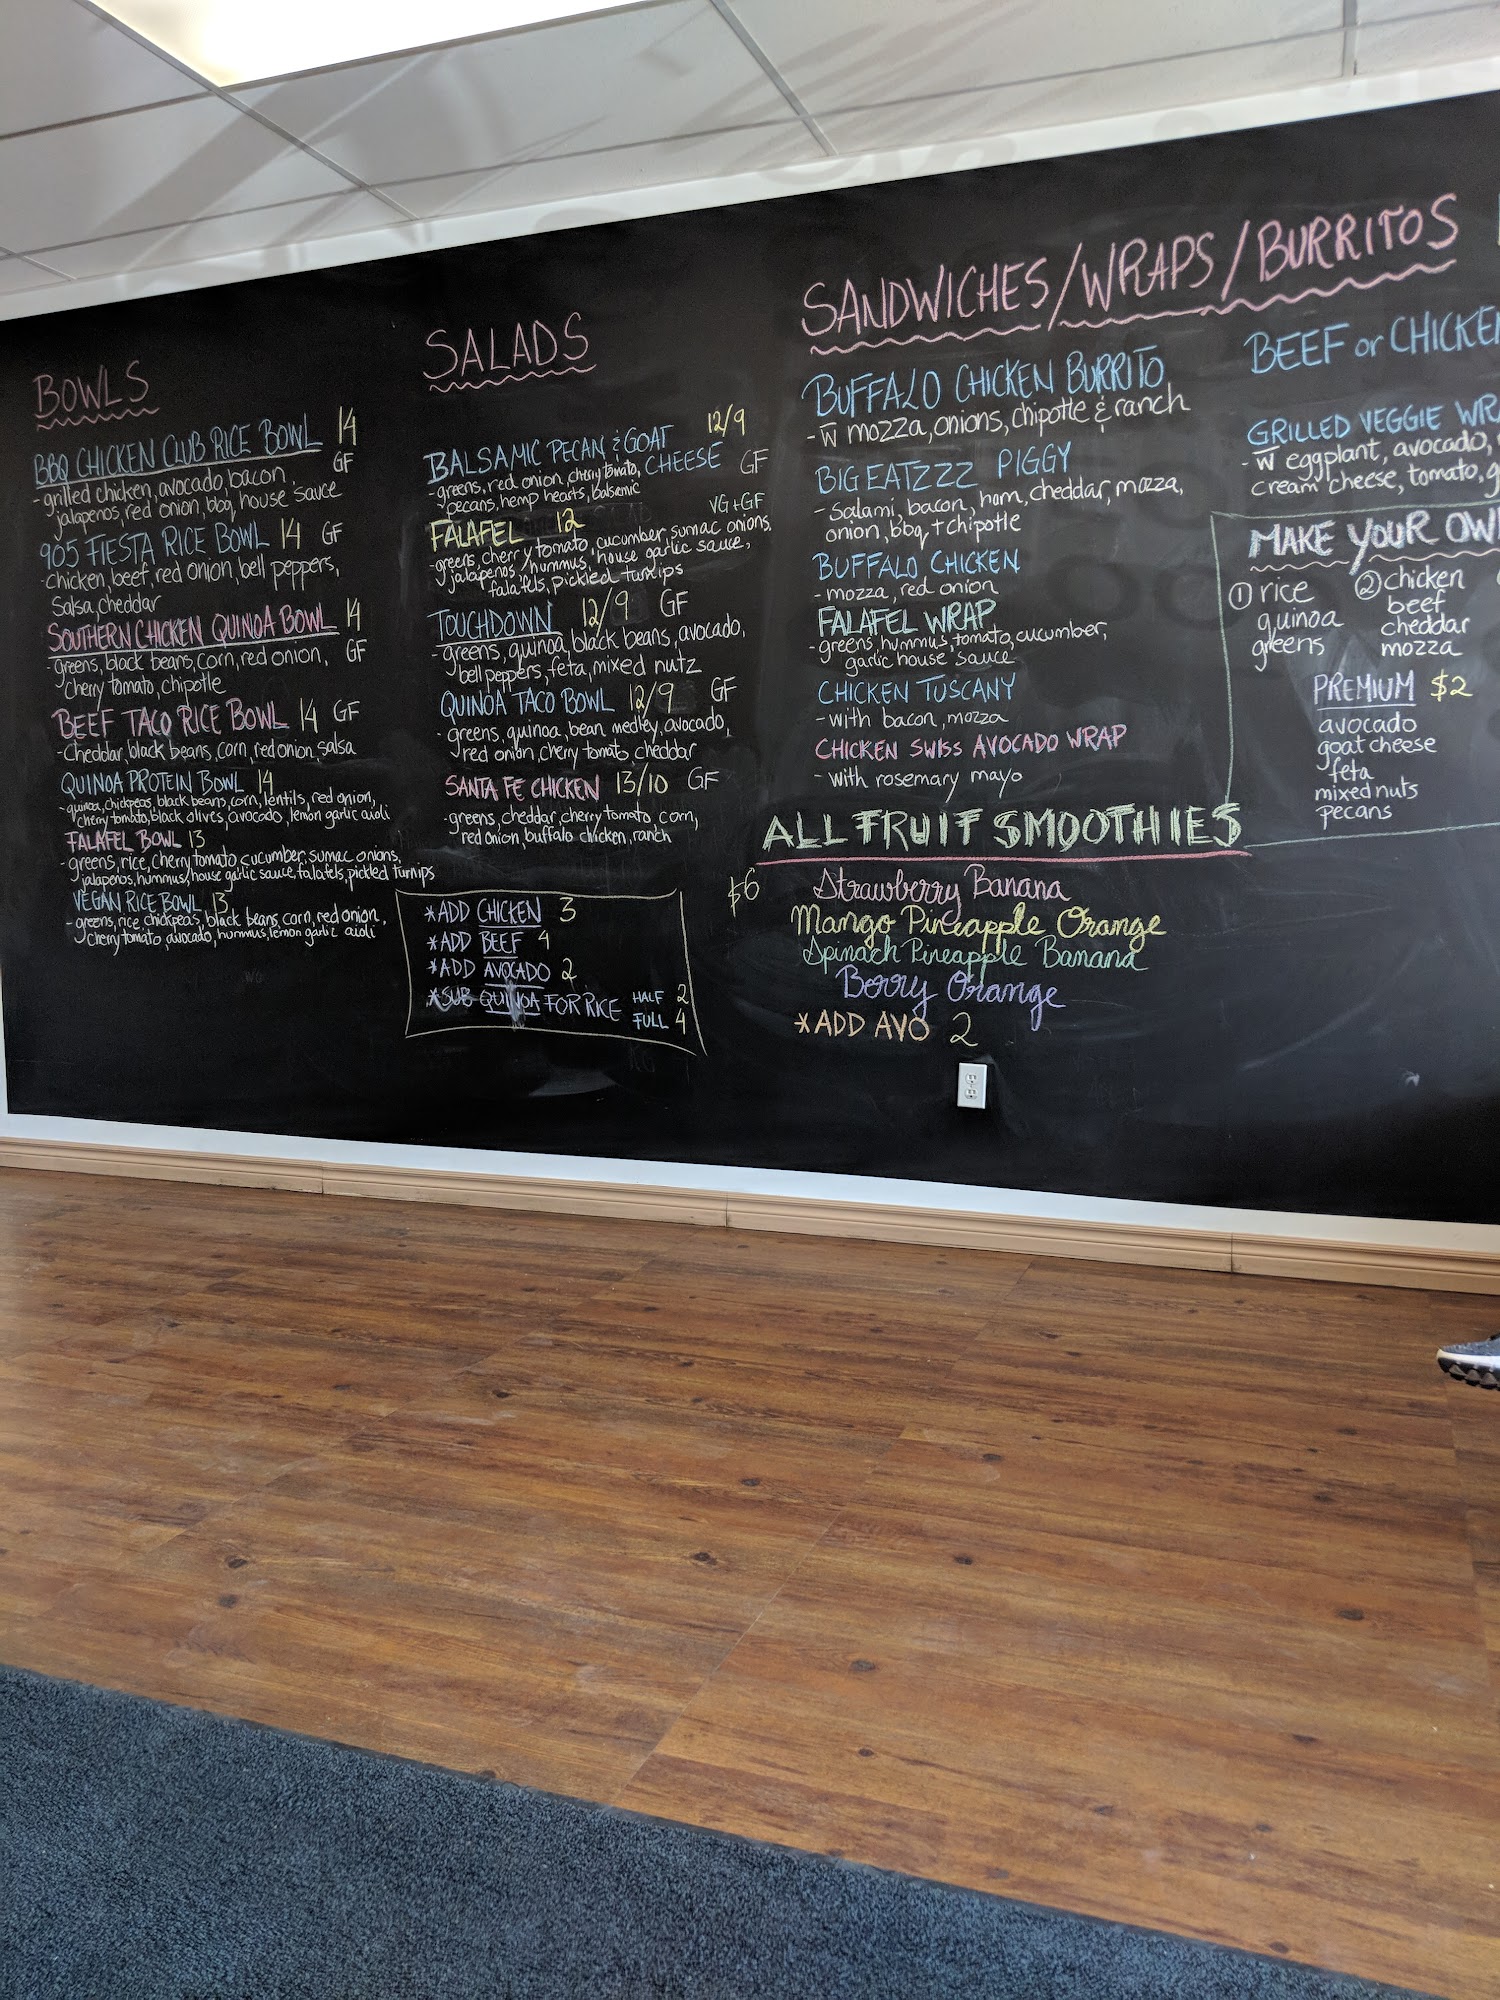 BOWLS
BBQ CHICKEN CLUB RICE BOWL 14
GF
- grilled chicken, avocado, bacon,
jalapenos, red onion, bbq, house sauce
905 FIESTA RICE BOWL 14 GF
- chicken, beef, red onion, bell peppers,
salsa, cheddar
SOUTHERN CHICKEN QUINOA BOWL 14
- greens, black beans, corn, red onion, GF
cherry tomato, chipotle
BEEF TACO RICE BOWL 14 GF
- Cheddar, black beans, corn, red onion, salsa
QUINOA PROTEIN BOWL 14
- quinoa, chickpeas, black beans, corn, lentils, red onion,
cherry tomato, black olives, avocado, lemon garlic aioli
FALAFEL BOWL 13
- greens, rice, cherry tomato, cucumber, sumac onions,
jalapenos, hummus, house garlic sauce, falafels, pickled turnips
VEGAN RICE BOWL 13
- greens, rice, chickpeas, black beans, corn, red onion,
cherry tomato, avocado, hummus, lemon garlic aioli
SALADS
12/9
BALSAMIC PECAN & GOAT
CHEESE GF
- greens, red onion, cherry tomato,
pecans, hemp hearts, balsamic
FALAFEL 12 VG+GF
- greens, cherry tomato, cucumber, sumac onions,
jalapenos, hummus, house garlic sauce,
falafels, pickled turnips
TOUCHDOWN 12/9 GF
- greens, quinoa, black beans, avocado,
bell peppers, feta, mixed nutz
QUINOA TACO BOWL 12/9 GF
- greens, quinoa, bean medley, avocado,
red onion, cherry tomato, cheddar
SANTA FE CHICKEN 13/10 GF
- greens, cheddar, cherry tomato, corn,
red onion, buffalo chicken, ranch
*ADD CHICKEN 3
*ADD BEEF 4
*ADD AVOCADO 2
*SUB QUINOA FOR RICE HALF 2
FULL 4
SANDWICHES/WRAPS/BURRITOS
BUFFALO CHICKEN BURRITO
- w mozza, onions, chipotle & ranch
BIG EATZZZ PIGGY
- salami, bacon, ham, cheddar, mozza,
onion, bbq + chipotle
BUFFALO CHICKEN
- mozza, red onion
FALAFEL WRAP
- greens, hummus, tomato, cucumber,
garlic house sauce
CHICKEN TUSCANY
- with bacon, mozza
CHICKEN SWISS AVOCADO WRAP
- with rosemary mayo
ALL FRUIT SMOOTHIES
$6 Strawberry Banana
Mango Pineapple Orange
Spinach Pineapple Banana
Berry Orange
*ADD AVO 2
BEEF or CHICKEN
GRILLED VEGGIE WRA
- w eggplant, avocado,
cream cheese, tomato, g
MAKE YOUR OWN
① rice
quinoa
greens
② chicken
beef
cheddar
mozza
PREMIUM $2
avocado
goat cheese
feta
mixed nuts
pecans